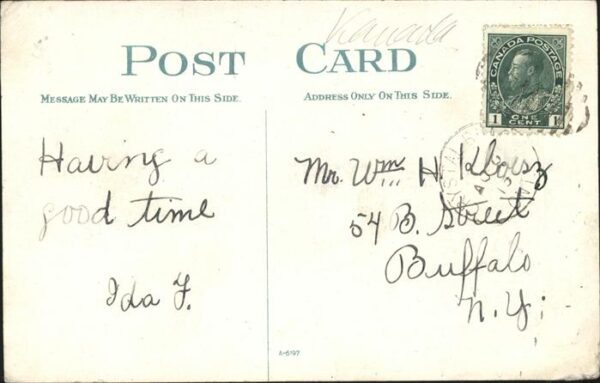 Kanada
POST CARD
MESSAGE MAY BE WRITTEN ON THIS SIDE.
ADDRESS ONLY ON THIS SIDE.
CANADA POSTAGE
1 ONE CENT 1
Having a
good time
Ida F.
Mr. Wm. H. Kloesz
54 B. Street
Buffalo
N.Y.
A-6197